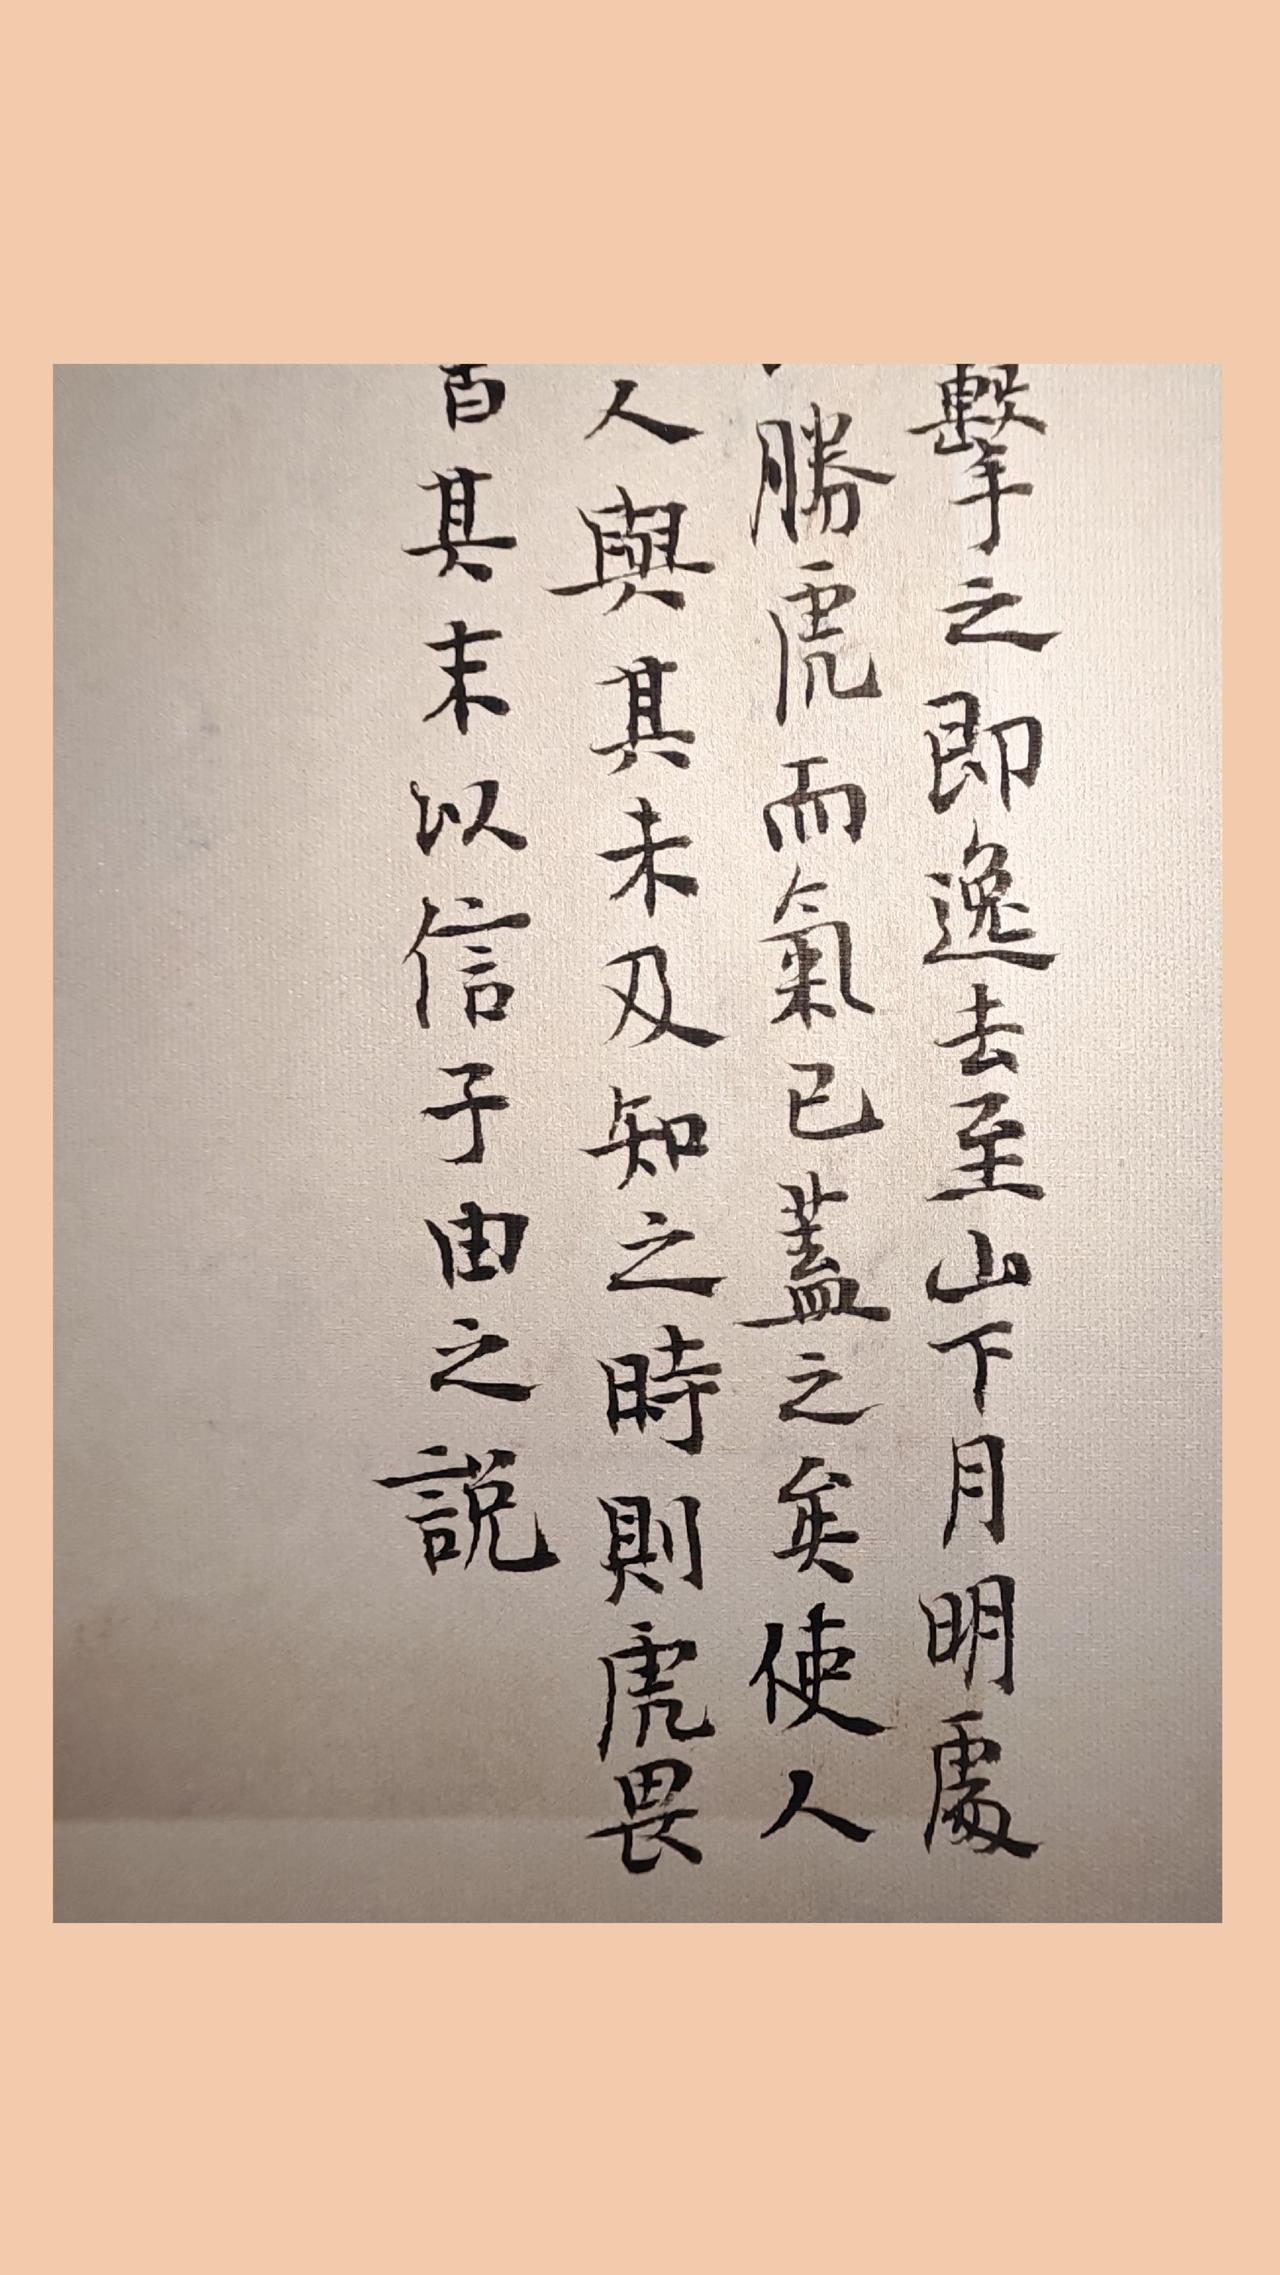 擊之即逸去至山下月明處
勝虎而氣已蓋之矣使人
人與其未及知之時則虎畏
其末以信子由之説